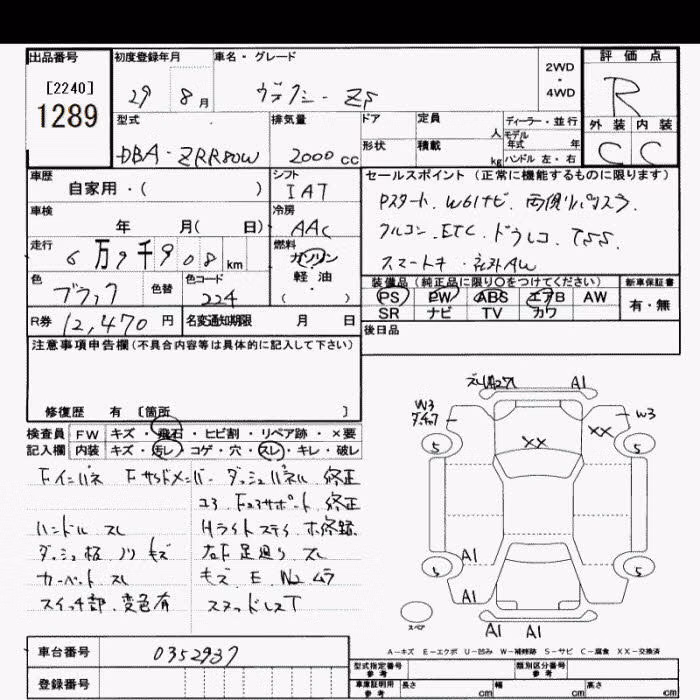 出品番号 初度登録年月 車名・グレード 2WD・4WD 評価点
[2240] 1289 29 8月 ヴォクシー ZS R
型式 排気量 ドア 定員 人 ディーラー・並行 外装 内装
DBA-ZRR80W 2000cc 形状 積載 kg モデル年式 年 ハンドル 左・右 C C
車歴 シフト セールスポイント(正常に機能するものに限ります)
自家用・( ) IAT Pスタート. W61ナビ. 両側リパスラ.
車検 冷房
年 月( 日) AAC クルコン. ETC. ドラレコ. TSS.
走行 燃料
6万9千908km ガソリン スマートキ. 社外AW
色 色替 色コード 軽・油 装備品(純正品に限り○をつけてください) 新車保証書
ブラック 224 ( ) PS PW ABS エアB AW 有・無
R券 12,470円 名変通知期限 月 日 SR ナビ TV カワ
後日品
注意事項申告欄(不具合内容等は具体的に記入して下さい)
修復歴 有 [箇所 ]
検査員 FW キズ・飛石・ヒビ割・リペア跡・×要
記入欄 内装 キズ・汚レ・コゲ・穴・スレ・キレ・破レ
Fインパネ Fサイドメンバー ダッシュパネル 修正
コアサポート 修正
ハンドル スレ Hライトステイ 補修跡.
ダッシュ板 ノリ キズ 右F足廻り スレ
カーペット スレ キズ E No.ムラ
スイッチ部 変色有 スタッドレスT
A1
W3 W3
XX XX
5 5
A1
5 5
A1
A1 A1
スペア
A-キズ E-エクボ U-凹み W-補修跡 S-サビ C-腐食 XX-交換済
車台番号 0352937 型式指定番号 参考 類別区分番号 参考
登録番号 車庫証明用 参考 長さ cm 幅 cm 高さ cm